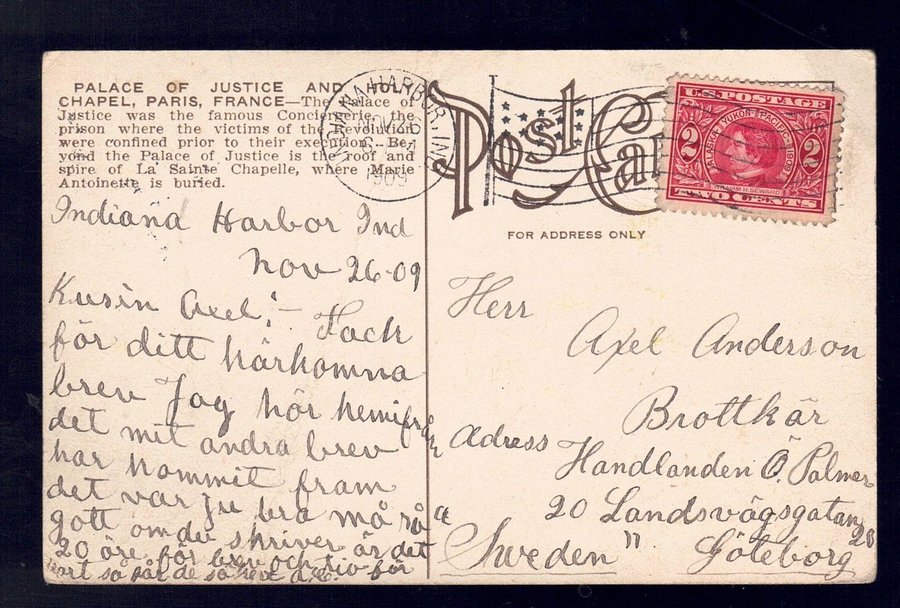 PALACE OF JUSTICE AND HOLY
CHAPEL, PARIS, FRANCE—The Palace of
Justice was the famous Conciergerie, the
prison where the victims of the Revolution
were confined prior to their execution. Be-
yond the Palace of Justice is the roof and
spire of La Sainte Chapelle, where Marie
Antoinette is buried.
Indiana Harbor Ind
Nov 26-09
Kusin Axel!- Tack
för ditt härkomna
brev Jag hör hemifrån
det mitt andra brev
har kommit fram
det var ju bra må så
gott om du skriver är det
20 öre för brev och tio för
kort så får de
INDIANA HARBOR, IND.
NOV 26
1909
Post Car
FOR ADDRESS ONLY
U.S. POSTAGE
ALASKA YUKON PACIFIC 1909
2 2
WILLIAM H. SEWARD
TWO CENTS
Herr
Axel Anderson
Brottkär
Adress
Handlanden Ö. Palmer
20 Landsvägsgatan 20
"Sweden" Göteborg